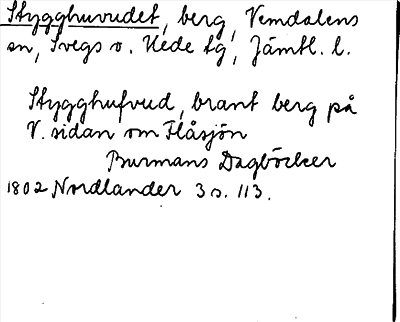 Stygghuvudet, berg, Vemdalens
sn, Svegs o. Hede tg, Jämtl. l.
Stygghufvud, brant berg på
V. sidan om Flåsjön
Burmans Dagböcker
1802 Nordlander 3 s. 113.